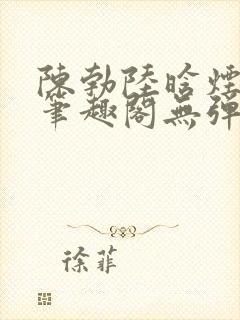 陳勃陸晗煙
筆趣閣無彈
徐菲